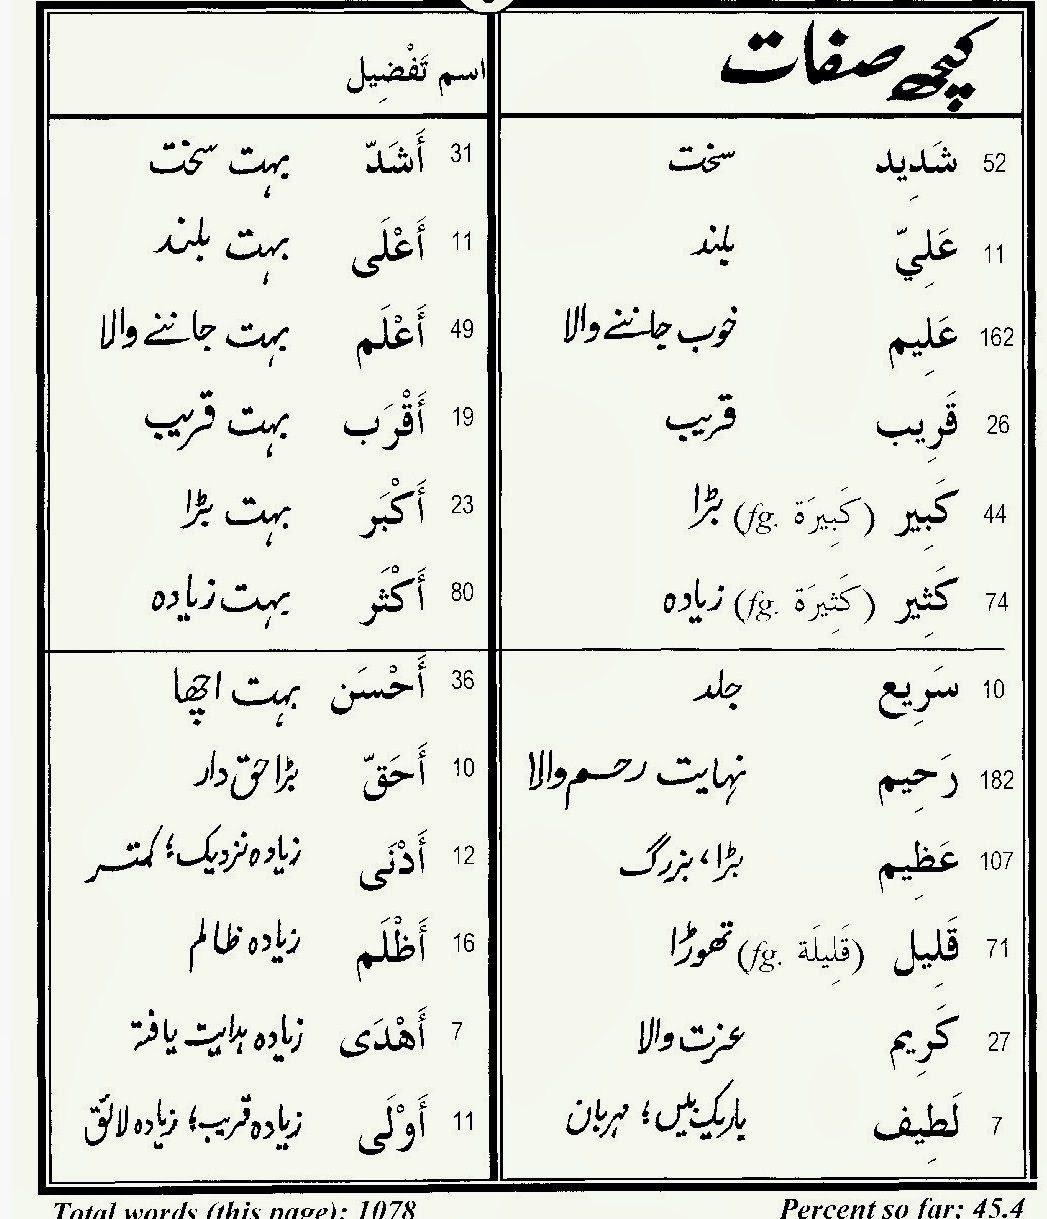 کچھ صفات
52 شَدِيد سخت
11 عَلِيّ بلند
162 عَلِيم خوب جاننے والا
26 قَرِيب قریب
44 كَبِير (كَبِيرَة fg.) بڑا
74 كَثِير (كَثِيرَة fg.) زیادہ
10 سَرِيع جلد
182 رَحِيم نہایت رحم والا
107 عَظِيم بڑا، بزرگ
71 قَلِيل (قَلِيلَة fg.) تھوڑا
27 كَرِيم عزت والا
7 لَطِيف باریک بیں؛ مہربان
اسم تَفْضِيل
31 أَشَدّ بہت سخت
11 أَعْلَى بہت بلند
49 أَعْلَم بہت جاننے والا
19 أَقْرَب بہت قریب
23 أَكْبَر بہت بڑا
80 أَكْثَر بہت زیادہ
36 أَحْسَن بہت اچھا
10 أَحَقّ بڑا حق دار
12 أَدْنَى زیادہ نزدیک؛ کمتر
16 أَظْلَم زیادہ ظالم
7 أَهْدَى زیادہ ہدایت یافتہ
11 أَوْلَى زیادہ قریب؛ زیادہ لائق
Total words (this page): 1078
Percent so far: 45.4